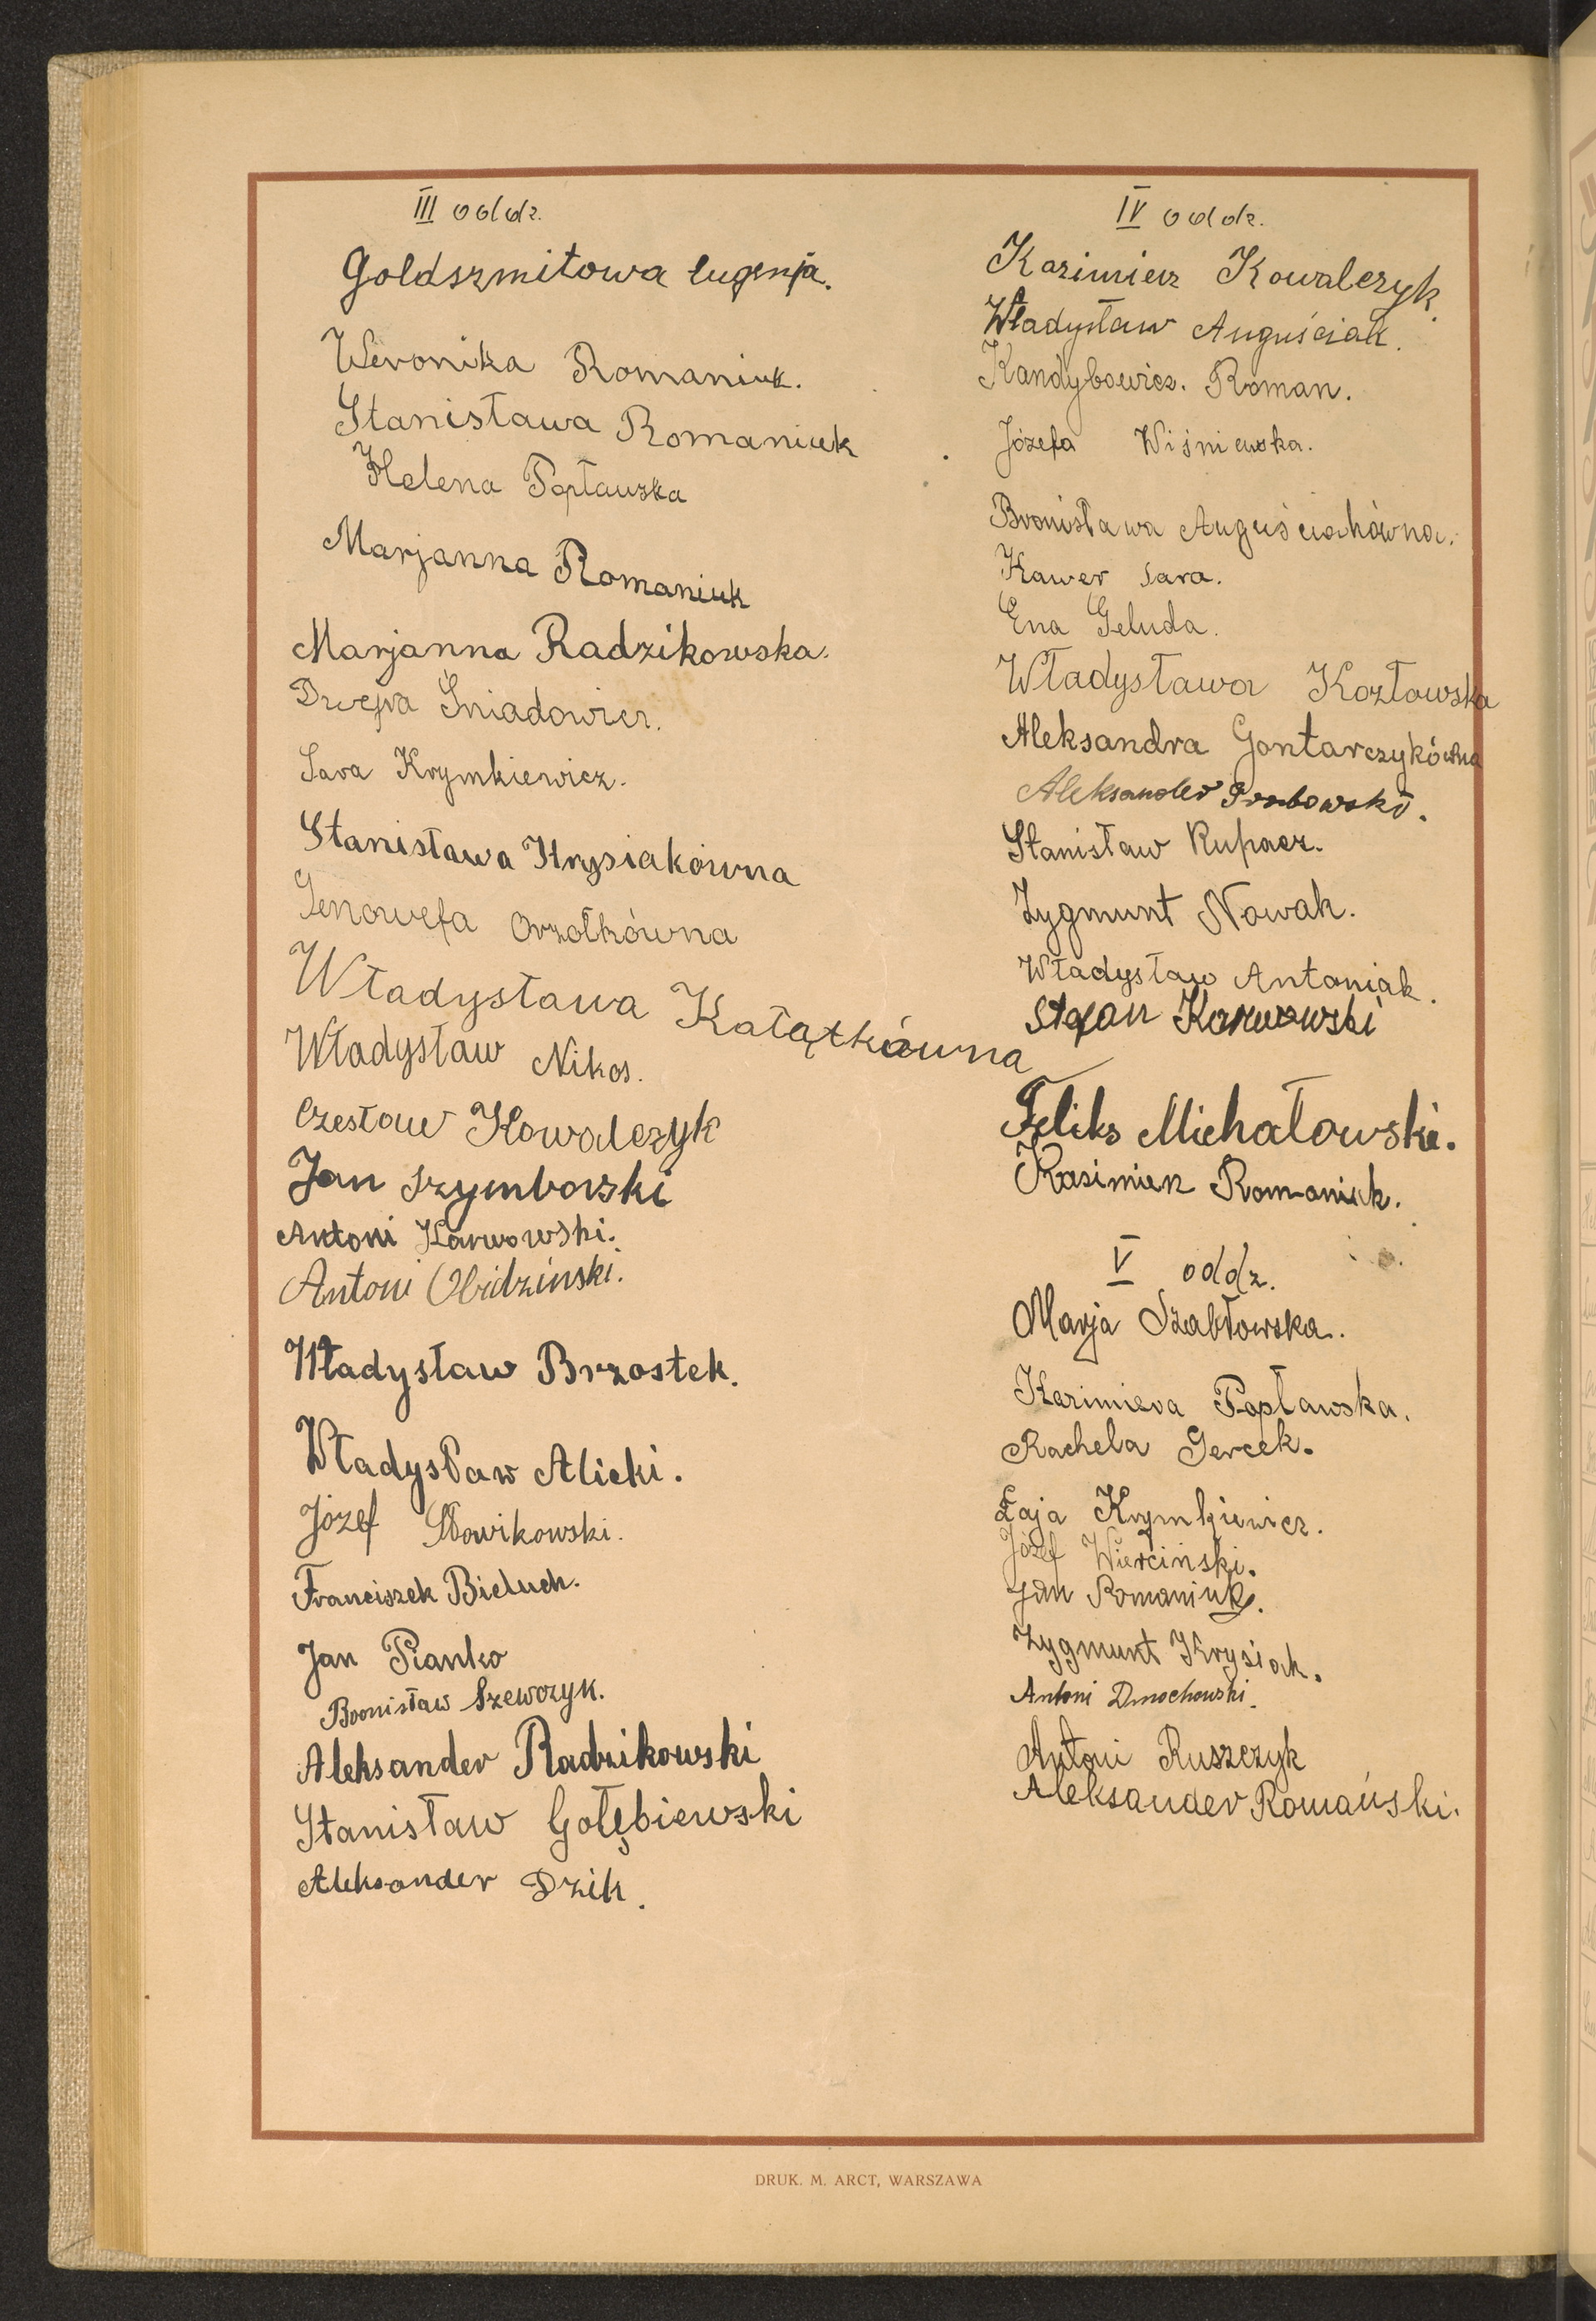 III oddz.
Goldszmitowa Eugenja.
Weronika Romaniuk.
Stanisława Romaniuk
Helena Popławska
Marjanna Romaniuk
Marjanna Radzikowska.
Śniadowicz.
Sara Krymkiewicz.
Stanisława Krysiakówna
Genowefa Orzołkówna
Władysława Kałątkówna
Władysław Nikos.
Czesław Kowalczyk
Jan Szymborski
Antoni Karwowski.
Antoni Obidziński.
Władysław Brzostek.
Władysław Alicki.
Józef Słowikowski.
Franciszek Bieluch.
Jan Pianko
Bronisław Szewczyk.
Aleksander Radzikowski
Stanisław Gołębiewski
Aleksander Dzik.
IV oddz.
Kazimierz Kowalczyk.
Władysław Auguściak.
Kandybowicz. Roman.
Józefa Wiśniewska.
Bronisława Auguściakówna.
Kawer Sara.
Ena Geluda.
Władysława Kozłowska
Aleksandra Gontarczykówna
Aleksander Grabowski.
Stanisław Rupacz.
Zygmunt Nowak.
Władysław Antoniak.
Stefan Karwowski
Feliks Michałowski.
Kasimierz Romaniuk.
V oddz.
Marja Szabłowska.
Kazimiera Popławska.
Rachela Gercek.
Łaja Krymkiewicz.
Józef Wierciński.
Jan Romaniuk.
Zygmunt Krysiak.
Antoni Dmochowski.
Antoni Ruszczyk
Aleksander Romański.
DRUK. M. ARCT, WARSZAWA